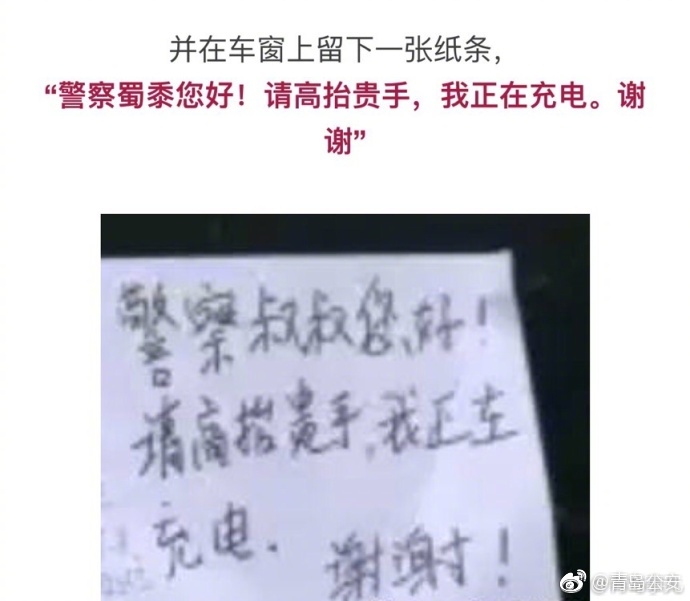 并在车窗上留下一张纸条，
“警察蜀黍您好！请高抬贵手，我正在充电。谢
谢”
警察叔叔您好！
请高抬贵手,我正在
充电. 谢谢！
@青岛公安